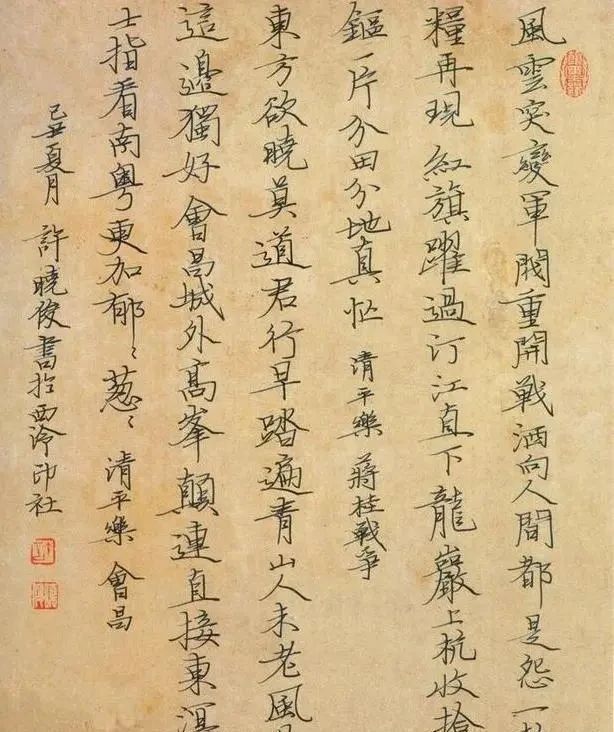 風雲突變軍閥重開戰洒向人間都是怨一
糧再現紅旗躍過汀江直下龍巖上杭收拾
甌一片分田分地真忙 清平樂 蔣桂戰爭
東方欲曉莫道君行早踏遍青山人未老風
這邊獨好會昌城外高峯顛連直接東溟
士指看南粵更加郁〻葱〻 清平樂 會昌
己丑夏月 許曉俊書於西泠印社